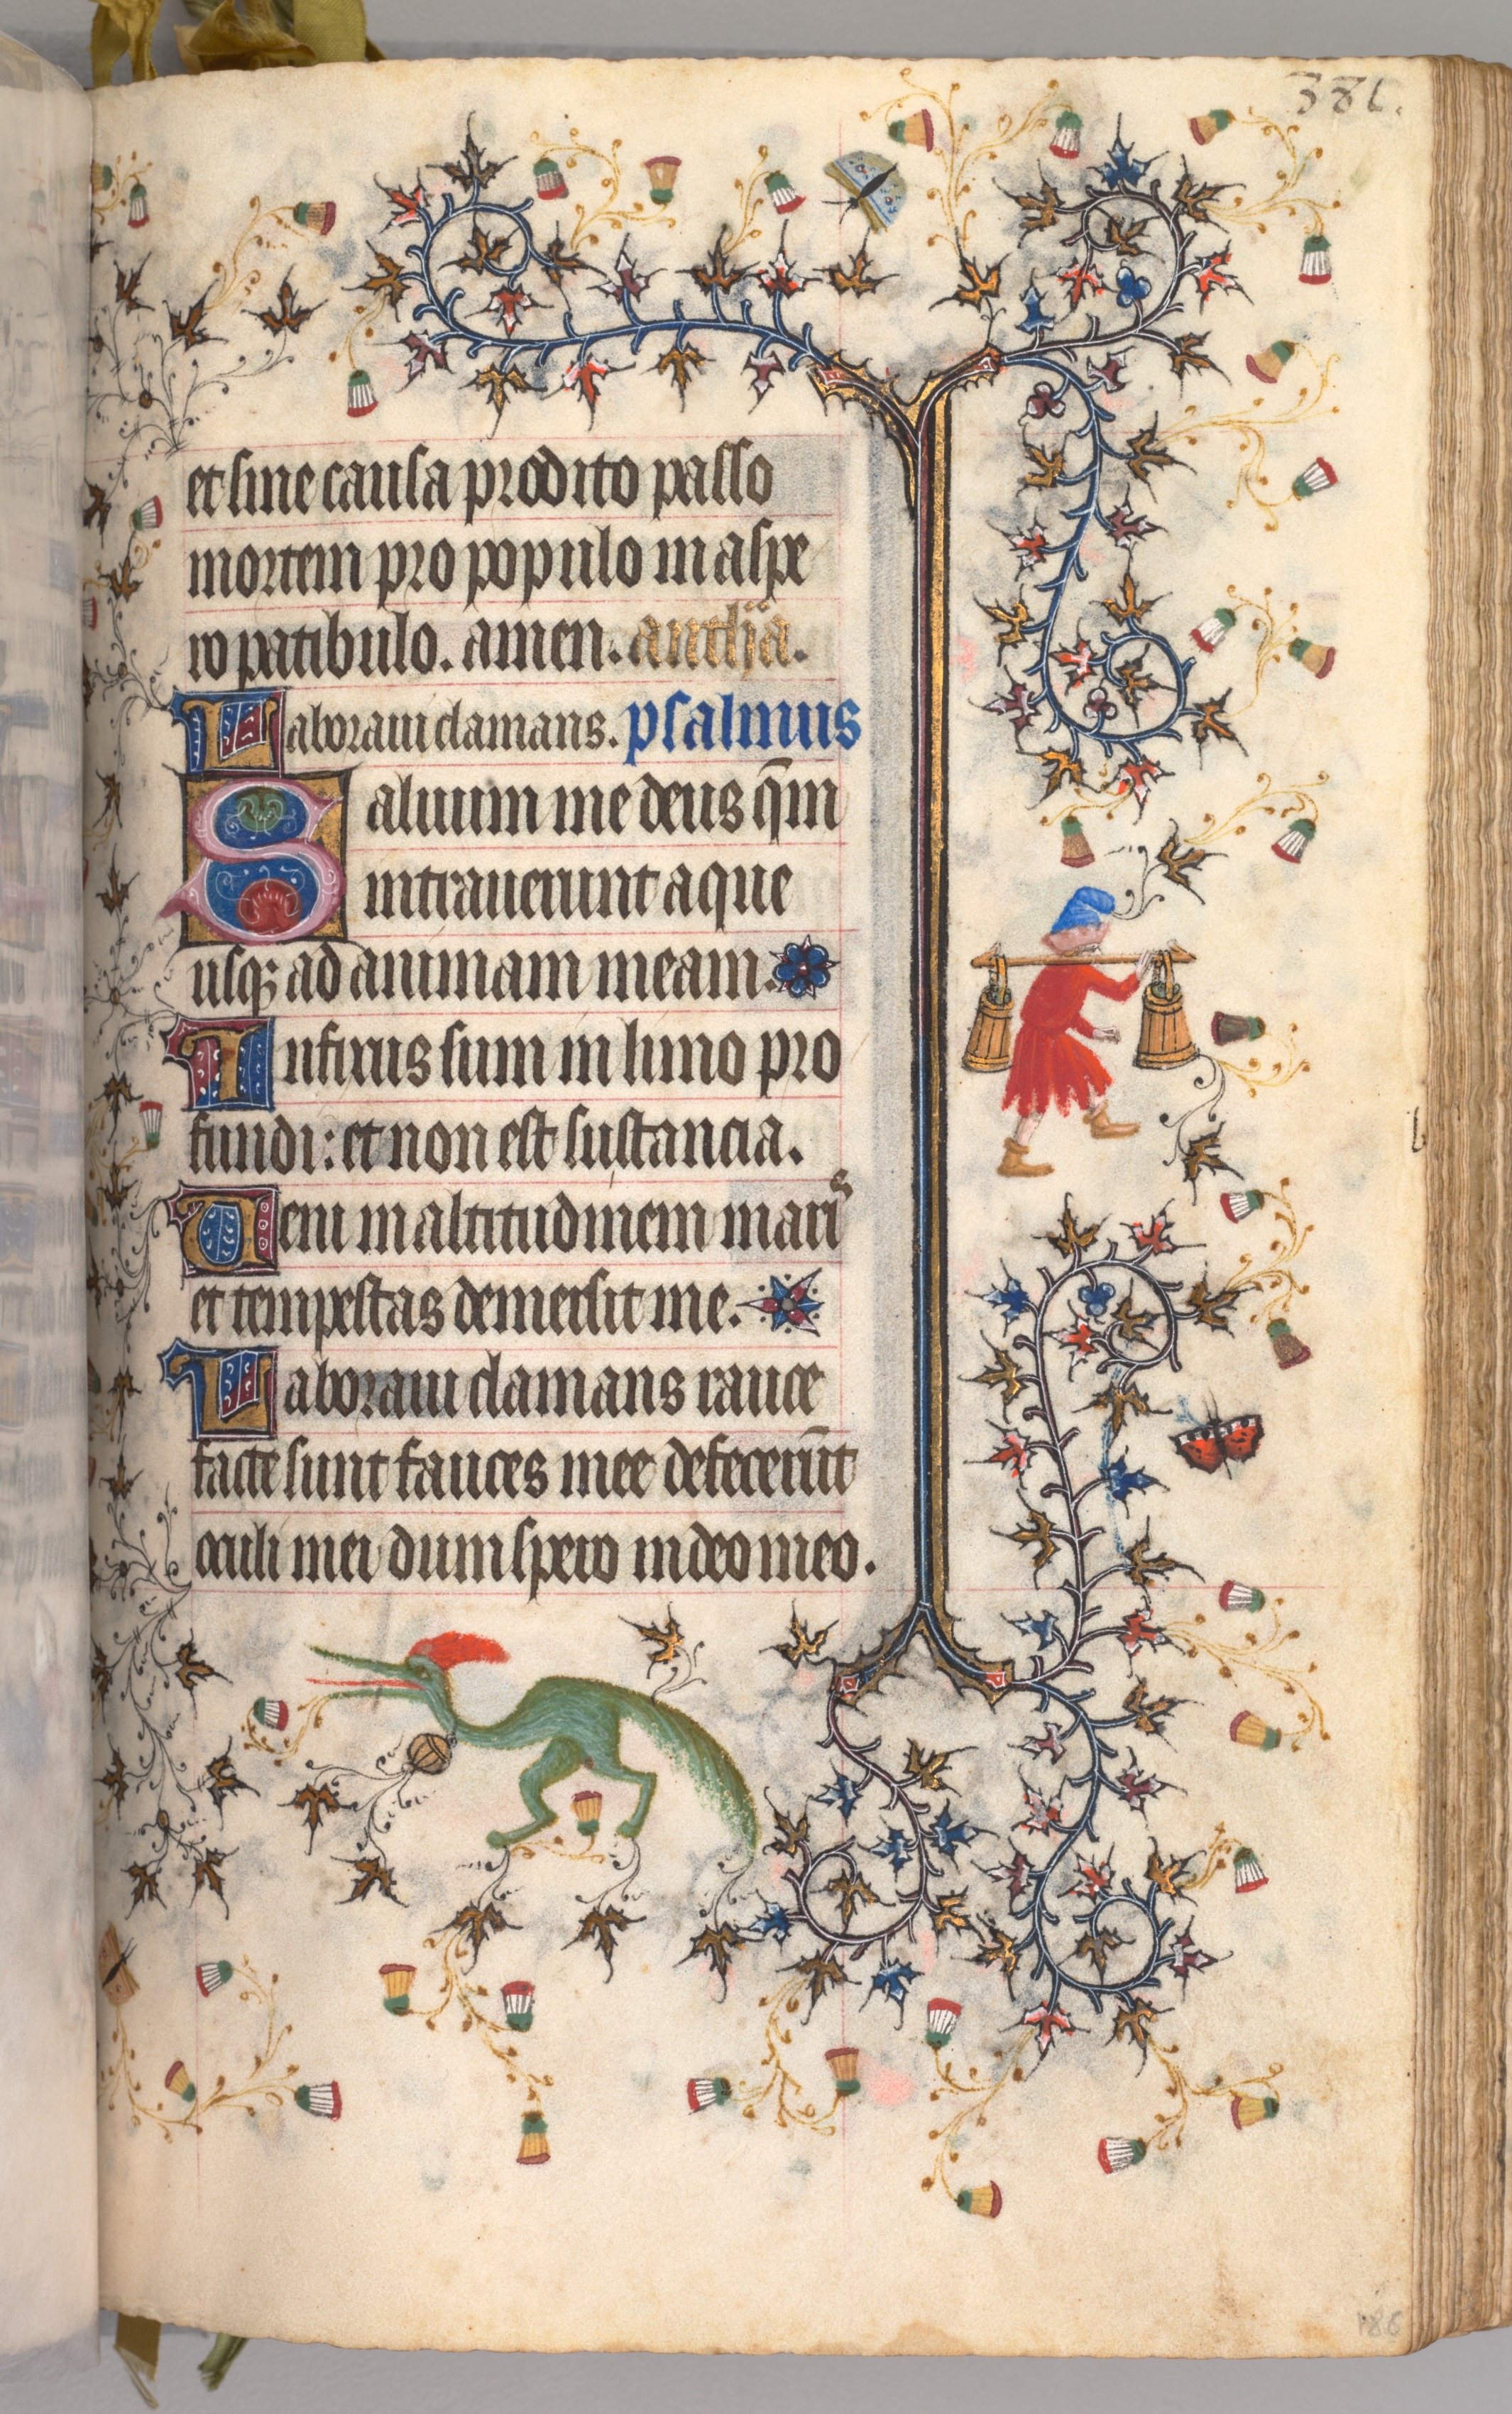 381.
et sine causa prodito passo
mortem pro populo in aspe
ro patibulo. amen. antħa.
Laboraui clamans. psalmus
Saluum me deus qm̄
intrauerunt aque
usq; ad animam meam.
Infixus sum in limo pro
fundi: et non est sustancia.
Ueni in altitudinem maris
et tempestas demersit me.
Laboraui clamans rauce
facte sunt fauces mee defecerūt
oculi mei dum spero in deo meo.
186